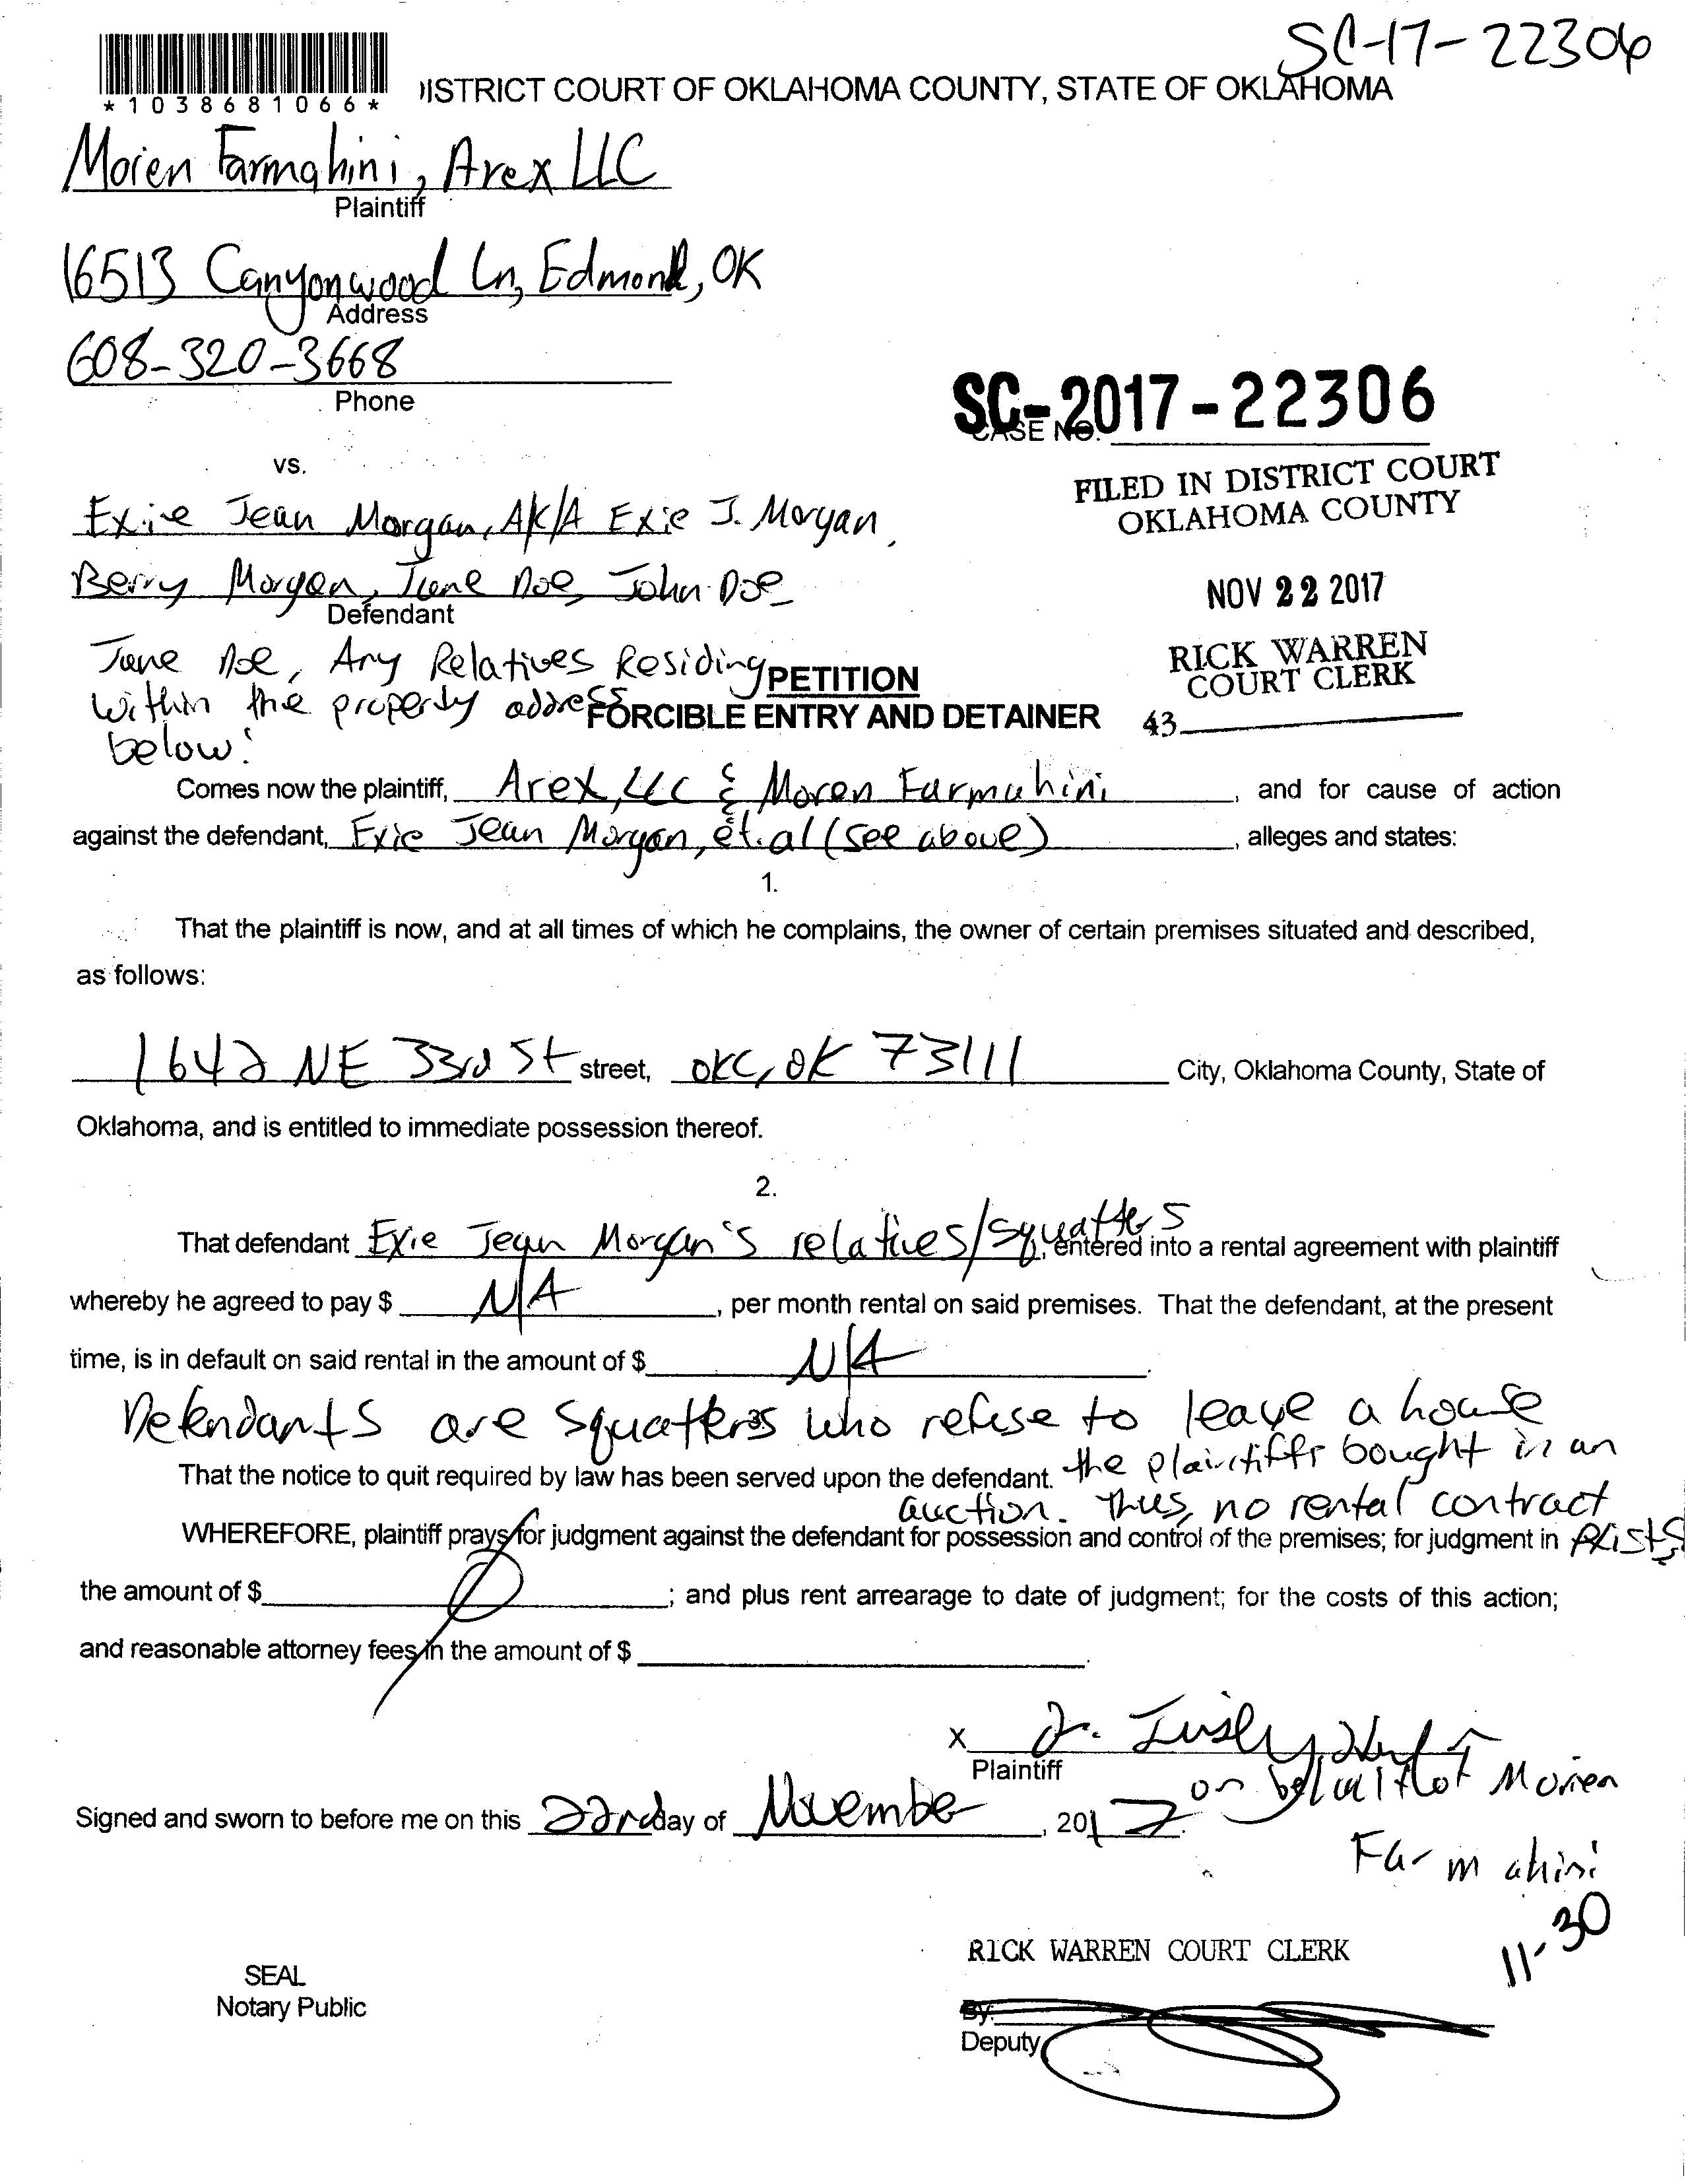 SC-17-22306
*1038681066*
ISTRICT COURT OF OKLAHOMA COUNTY, STATE OF OKLAHOMA
Moien Farmahini, Arex LLC
Plaintiff
16513 Canyonwood Ln, Edmond, OK
Address
608-320-3668
Phone
SC-2017-22306
CASE NO.
vs.
FILED IN DISTRICT COURT
OKLAHOMA COUNTY
Exie Jean Morgan, AK/A Exie J. Morgan,
Berry Morgan, Jane Doe, John Doe
Defendant
NOV 22 2017
Jane Doe, Any Relatives Residing
within the property address
below:
RICK WARREN
COURT CLERK
PETITION
FORCIBLE ENTRY AND DETAINER
43
Comes now the plaintiff, Arex, LLC & Moren Farmahini, and for cause of action
against the defendant, Exie Jean Morgan, et.al (see above), alleges and states:
1.
That the plaintiff is now, and at all times of which he complains, the owner of certain premises situated and described,
as follows:
1642 NE 33rd St street, OKC, OK 73111 City, Oklahoma County, State of
Oklahoma, and is entitled to immediate possession thereof.
2.
That defendant Exie Jean Morgan's relatives/squatters, entered into a rental agreement with plaintiff
whereby he agreed to pay $ N/A, per month rental on said premises. That the defendant, at the present
time, is in default on said rental in the amount of $ N/A.
Defendants are squatters who refuse to leave a house
That the notice to quit required by law has been served upon the defendant. the plaintiffs bought in an
auction. Thus, no rental contract
WHEREFORE, plaintiff prays for judgment against the defendant for possession and control of the premises; for judgment in exists
the amount of $ ; and plus rent arrearage to date of judgment; for the costs of this action;
and reasonable attorney fees in the amount of $ .
X
Plaintiff
on behalf of Moien
Farmahini
Signed and sworn to before me on this 22nd day of November, 2017.
11-30
RICK WARREN COURT CLERK
SEAL
Notary Public
By:
Deputy